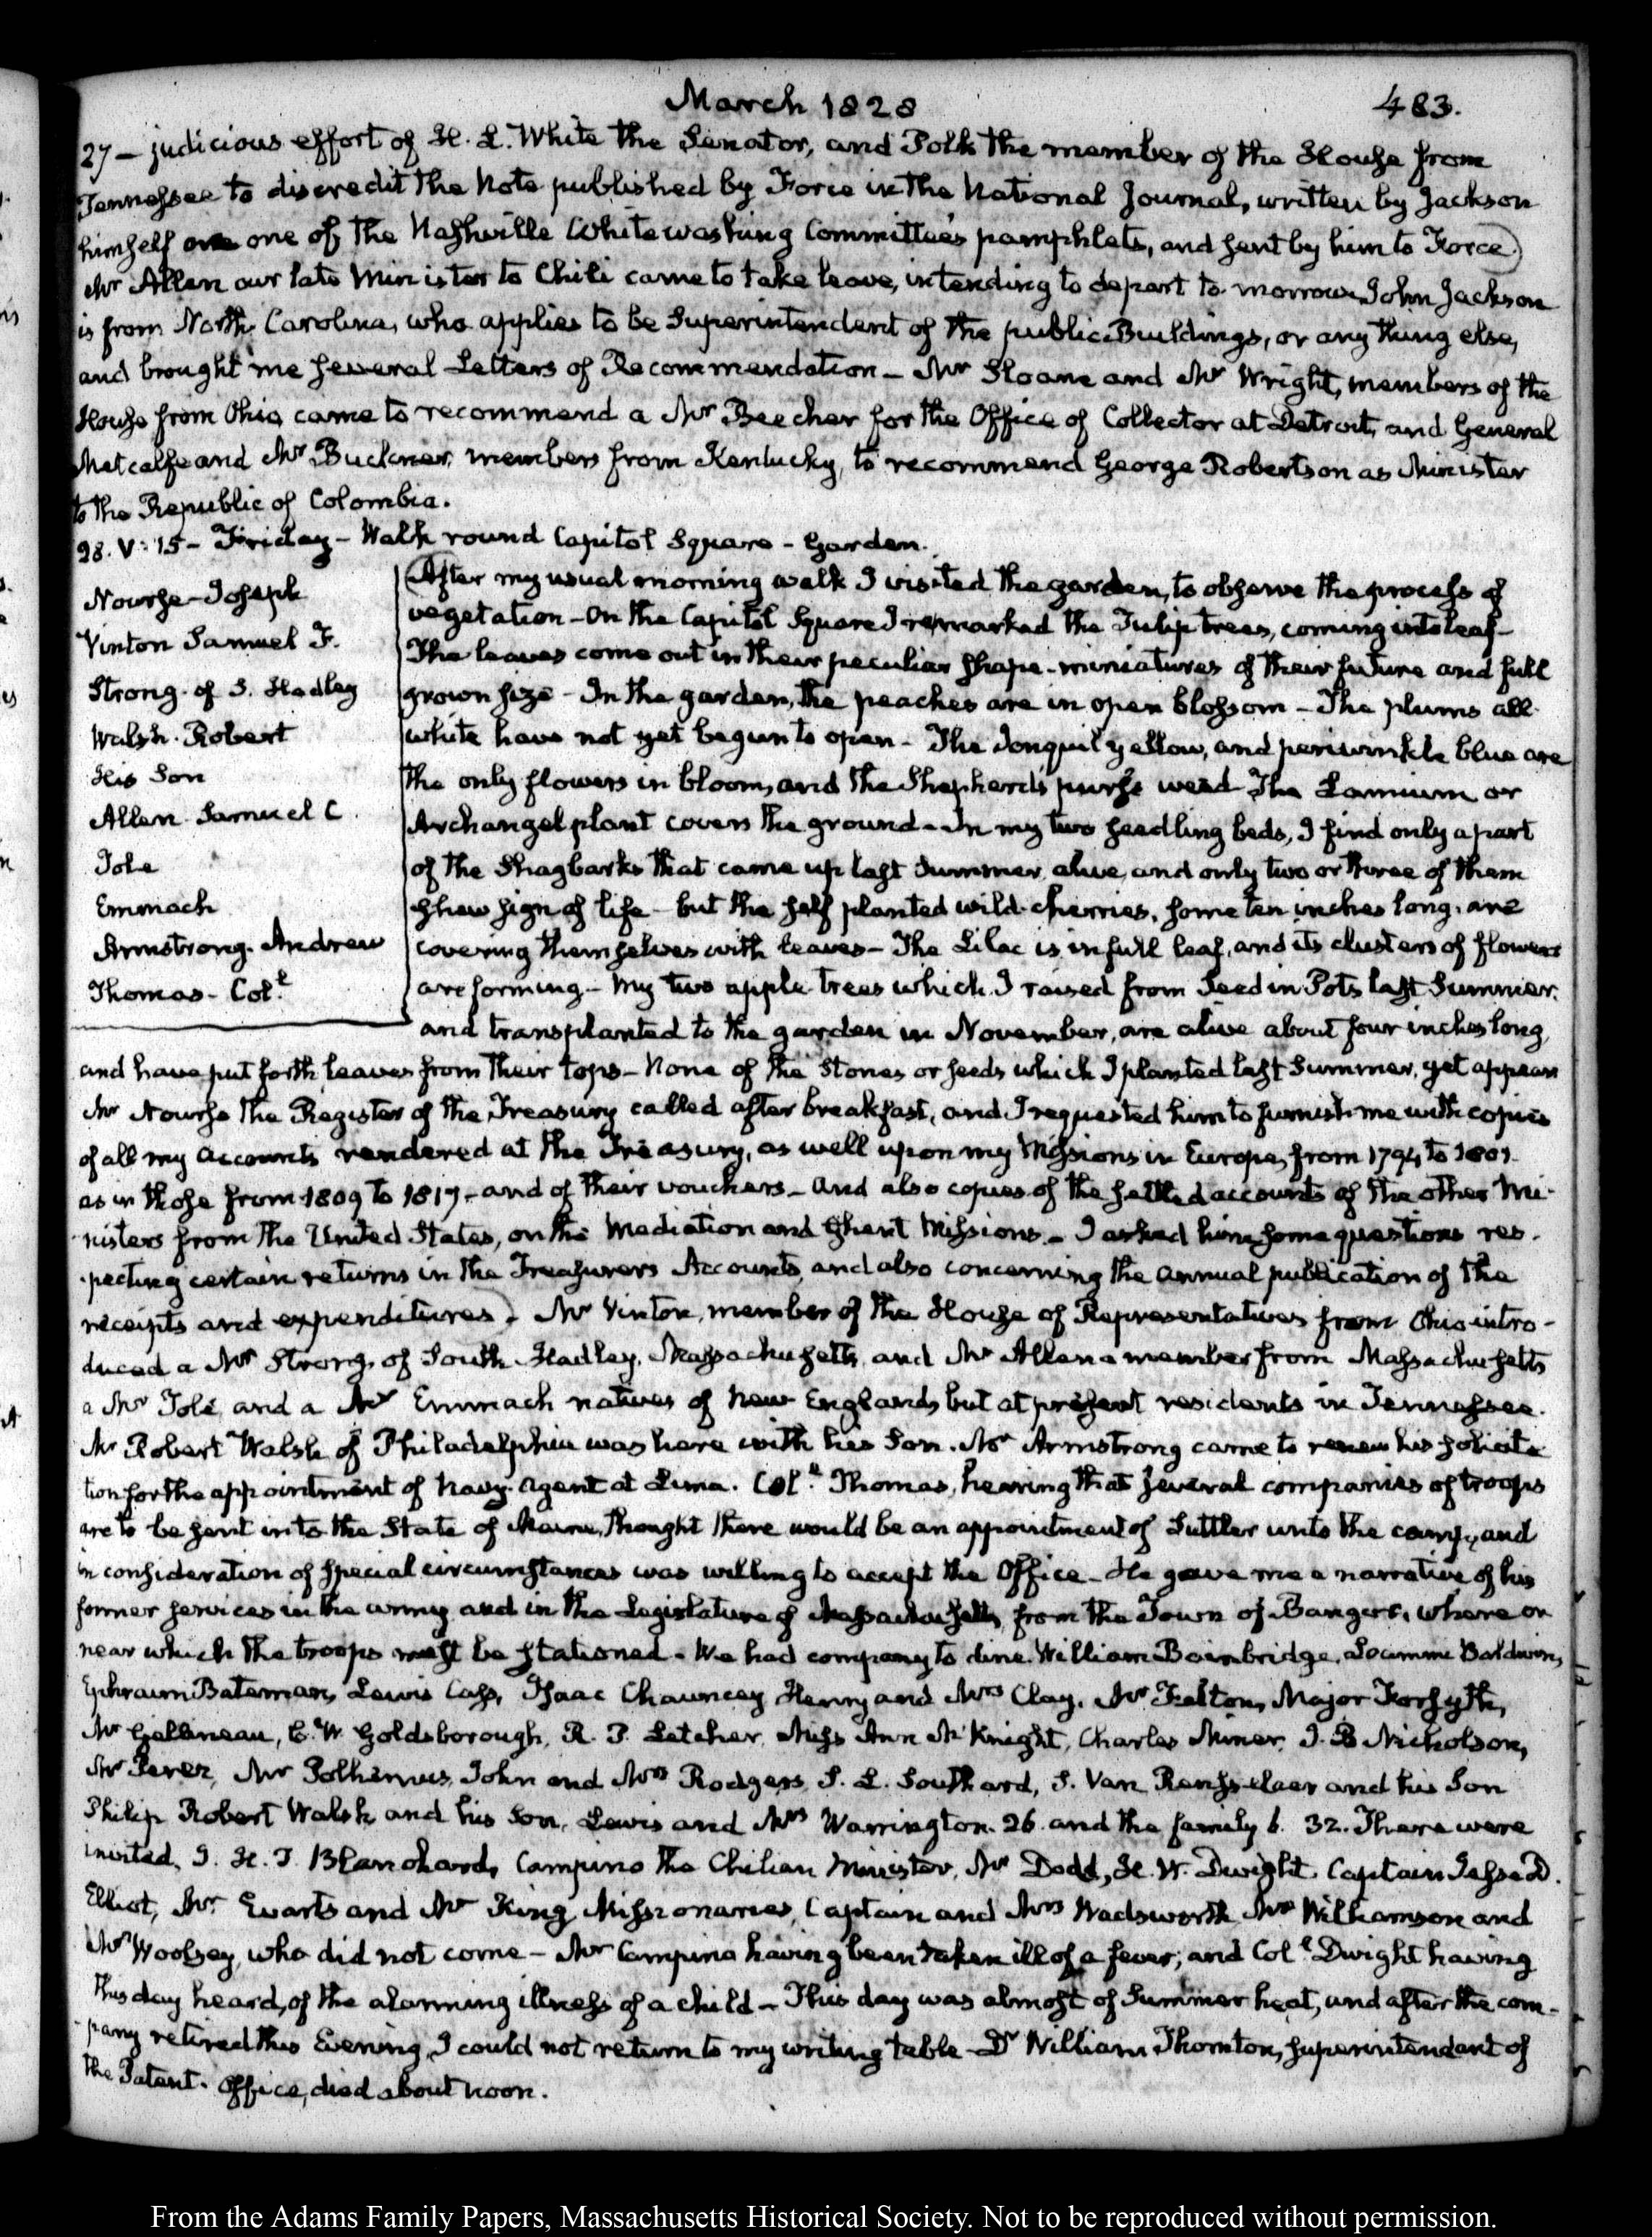 March 1828
483.
27 — judicious effort of H. L. White the Senator, and Polk the member of the House from
Tennessee to discredit the Note published by Force in the National Journal, written by Jackson
himself one of the Nashville Whitewashing Committee's pamphlets, and sent by him to Force)
Mr Allen our late Minister to Chili came to take leave, intending to depart to morrow. John Jackson
is from North Carolina, who applies to be Superintendent of the public Buildings, or any thing else,
and brought me several Letters of Recommendation — Mr Sloane and Mr Wright, members of the
House from Ohio came to recommend a Mr Beecher for the Office of Collector at Detroit, and General
Metcalfe and Mr Buckner, members from Kentucky, to recommend George Robertson as Minister
to the Republic of Colombia.
28. V: 15 — Friday — Walk round Capitol Square — Garden.
Nourse — Joseph
Vinton Samuel F.
Strong. of S. Hadley
Walsh. Robert
His Son
Allen Samuel C.
Tole
Emmach
Armstrong. Andrew
Thomas — Coll.
(After my usual morning walk I visited the garden, to observe the process of
vegetation — On the Capitol Square I remarked the Tulip trees, coming into leaf —
The leaves come out in their peculiar shape — miniatures of their future and full
grown size — In the garden, the peaches are in open blossom — The plums all
white have not yet begun to open — The Jonquil yellow, and periwinkle blue are
the only flowers in bloom, and the Shepherd's purse weed The Lamium or
Archangel plant covers the ground — In my two seedling beds, I find only a part
of the Shagbarks that came up last Summer, alive, and only two or three of them
shew sign of life — but the self planted wild cherries, some ten inches long, are
covering themselves with leaves — The Lilac is in full leaf, and its clusters of flowers
are forming — My two apple trees which I raised from Seed in Pots last Summer,
and transplanted to the garden in November, are alive about four inches long,
and have put forth leaves from their tops — None of the Stones or seeds which I planted last Summer, yet appear
Mr Nourse the Register of the Treasury called after breakfast, and I requested him to furnish me with copies
of all my Accounts rendered at the Treasury, as well upon my Missions in Europe, from 1794 to 1801
as in those from 1809 to 1817 — and of their vouchers — and also copies of the settled accounts of the other Mi-
nisters from the United States, on the Mediation and Ghent Missions — I asked him some questions res-
pecting certain returns in the Treasurers Accounts, and also concerning the annual publication of the
receipts and expenditures). Mr Vinton, member of the House of Representatives from Ohio intro-
duced a Mr Strong, of South Hadley, Massachusetts, and Mr Allen a member from Massachusetts
a Mr Tole, and a Mr Emmach natives of New England, but at present residents in Tennessee.
Mr Robert Walsh of Philadelphia was here with his Son. Mr Armstrong came to renew his solicita-
tion for the appointment of Navy Agent at Lima. Coll. Thomas, hearing that several companies of troops
are to be sent into the State of Maine, thought there would be an appointment of Suttler unto the camp, and
in consideration of special circumstances was willing to accept the Office — He gave me a narrative of his
former services in the army and in the Legislature of Massachusetts, from the Town of Bangor, where or
near which the troops must be stationed. We had company to dine. William Bainbridge, Loammi Baldwin,
Ephraim Bateman, Lewis Cass, Isaac Chauncey, Henry and Mrs Clay, Mr Felton, Major Forsyth,
Mr Gallineau, C. W. Goldsborough, R. P. Letcher, Miss Ann McKnight, Charles Miner, J. B Nicholson,
Mr Perez, Mr Polhemus, John and Mrs Rodgers, S. L. Southard, S. Van Rensselaer and his Son
Philip, Robert Walsh and his Son, Lewis and Mrs Warrington. 26. and the family 6. 32. There were
invited, J. H. T. Blanchard, Campino the Chilian Minister, Mr Dodd, H. W. Dwight, Captain Jesse D.
Elliot, Mr. Evarts and Mr King, Missionaries, Captain and Mrs Wadsworth Mr Williamson and
Mr Woolsey, who did not come — Mr Campino having been taken ill of a fever, and Coll Dwight having
this day heard, of the alarming illness of a child — This day was almost of Summer heat, and after the com-
pany retired this Evening, I could not return to my writing table — Dr William Thornton, Superintendent of
the Patent. Office, died about noon.
From the Adams Family Papers, Massachusetts Historical Society. Not to be reproduced without permission.